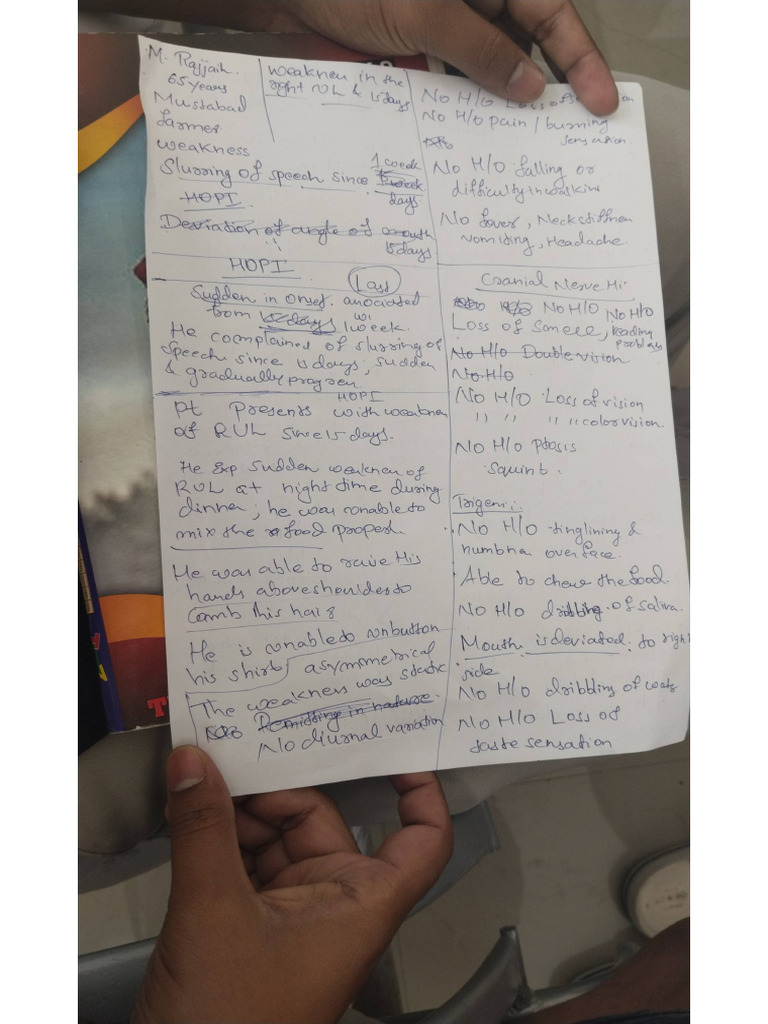 M. Rajjaih.
65 years
Mustabad
farmer
weakness
Slurring of speech since 1 week
days
HOPI.
Deviation of angle of mouth
15 days
weakness in the
right UL & 15 days
HOPI
Last
Sudden in onset. associated
from 1 week.
He complained of slurring of
speech since 15 days; sudden
& gradually progren.
HOPI
Pt presents with weaknen
of RUL since 15 days.
He Exp sudden weaknen of
RUL at night time during
dinner; he was unable to
mix the food properl.
He was able to raise His
hands above shoulder to
comb this hair
He is unable to unbutton
his shirt asymmetrical
The weakness was static
Remitting in nature.
No diurnal variation
No H/O Loss of
No H/O pain / burning
sensation
No H/O falling or
difficulty in walking
No fever, Neck stiffnen
vomiting, Headache.
Cranial Nerve Hi
No H/O No H/O
Loss of Smell, reading
problem
No H/O Double vision
No H/O
No H/O Loss of vision
" " " " color vision.
No H/O ptosis
squint.
Trigemi:
No H/O tinglining &
numbna over face.
Able to chew the food.
No H/O dribling of saliva.
Mouth is deviated to right
side
No H/O dribbling of wate
No H/O Loss of
taste sensation
T